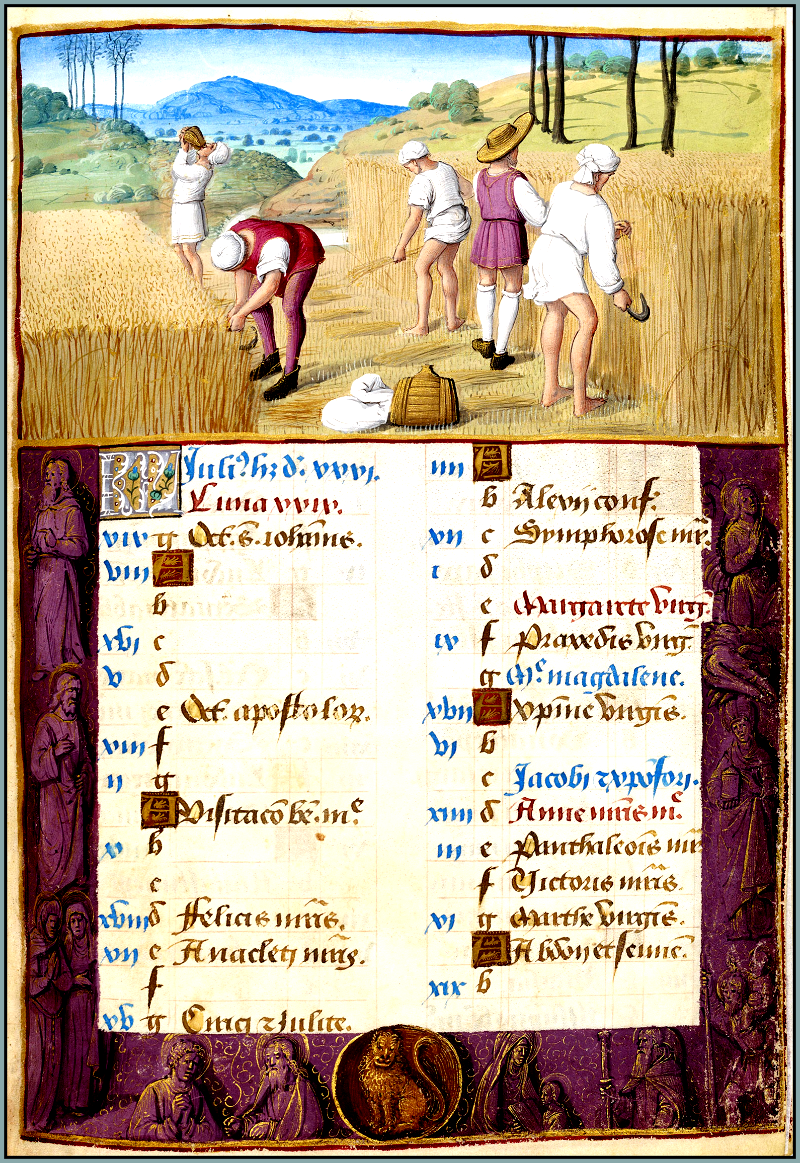 KL Juli⁹ hz d. xxxi.
Luna xxix.
xix g Oct. S. iohānis.
viii A
b
xvi c
v d
e Oct. apostolor.
xiii f
ii g
A Visitacō be. mᵉ
x b
c
xviii d Felicis mr̄is.
vii e Anacleti mr̄is.
f
xv g Cirici & Julite.
iiii A
b Alexij conf.
xii c Symphorose mr̄.
i d
e Margarete virg.
ix f Praxedis virg.
g Mᵉ magdalene.
xvii A Xpine virgis.
vi b
c Jacobi & xpofori.
xiiii d Anne mr̄is mᵉ
iii e Panthaleōis mr̄
f Victoris mr̄is.
xi g Marthe virgis.
A Abdon et sennē.
xix b